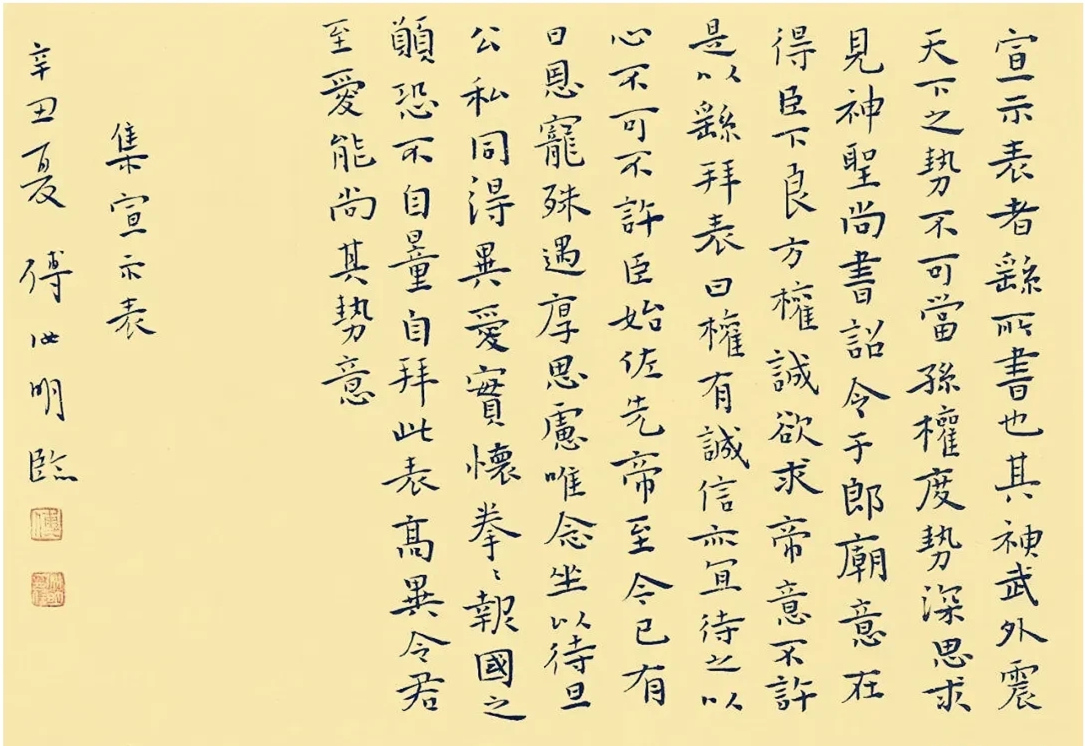 宣示表者繇所書也其神武外震
天下之勢不可當孫權度勢深思求
見神聖尚書詔令于郎廟意在
得臣下良方權誠欲求帝意不許
是以繇拜表曰權有誠信亦宜待之以
心不可不許臣始佐先帝至今已有
日恩寵殊遇厚思慮唯念坐以待旦
公私同得異愛實懷拳〻報國之
顛恐不自量自拜此表高異令君
至愛能尚其勢意
集宣示表
辛丑夏 傅汝明臨